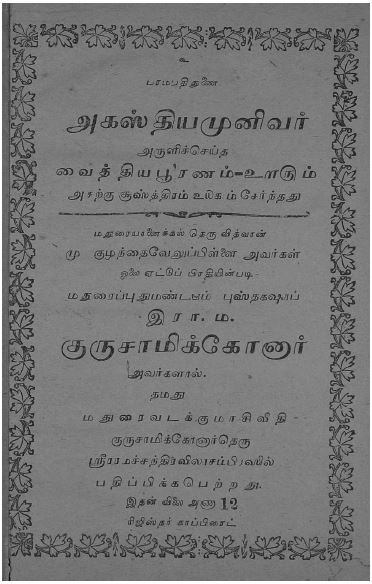 உ
பரமபதிதுணை
அகஸ்தியமுனிவர்
அருளிச்செய்த
வைத்தியபூரணம்-உாடும்
அதற்கு சூஸ்த்திரம் உலிகம் சேர்ந்தது
மதுரையானைக்கல் தெரு வித்வான்
மு குழந்தைவேலுப்பிள்ளை அவர்கள்
ஓலை ஏட்டுப் பிரதியின்படி
மதுரைப்புதுமண்டபம் புஸ்தகஷாப்
இரா. ம.
குருசாமிக்கோனார்
அவர்களால்.
தமது
மதுரைவடக்குமாசிவீதி
குருசாமிக்கோனார்தெரு
ஸ்ரீராமச்சந்திரவிலாசம்பிரஸில்
பதிப்பிக்கபெற்றது.
இதன் விலை அணா 12
ரிஜிஸ்தர் காப்பிரைட்